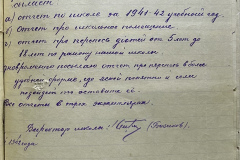 а) отчет по школе за 1941-42 учебный год.
б) отчет о школьном помещении
в) отчет про перепись детей от 5 лет до
18 лет по району нашей школы
Одновременно посылаем отчет про перепись в более
удобной форме, где если
позволит то оставьте её.
Все отчеты в трех экземплярах.
Директор школы: